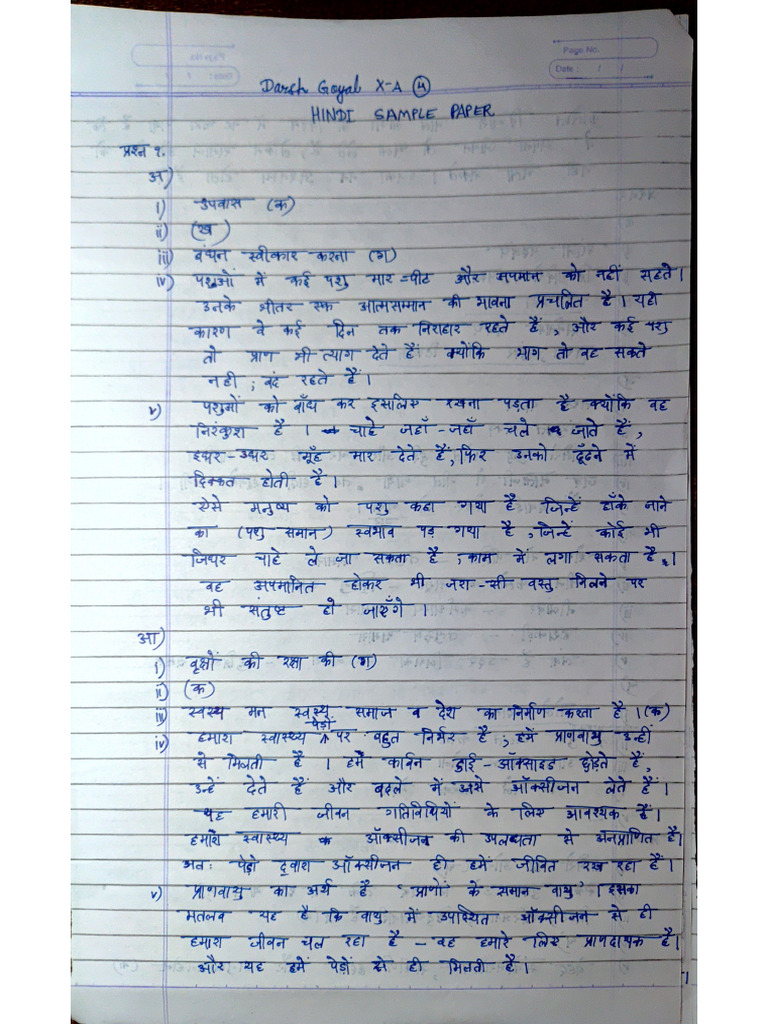 Page No.
Date : / /
Darsh Goyal X-A 4
HINDI SAMPLE PAPER
प्रश्न १.
अ)
i) उपवास (क)
ii) (ख)
iii) बंधन स्वीकार करना (ग)
iv) पशुओं में कई पशु मार-पीट और अपमान को नहीं सहते।
उनके भीतर एक आत्मसम्मान की भावना प्रचलित है। यही
कारण वे कई दिन तक निराहार रहते हैं, और कई पशु
तो प्राण भी त्याग देते हैं क्योंकि भाग तो वह सकते
नही, बंद रहते हैं।
v) पशुओं को बाँध कर इसलिए रखना पड़ता है क्योंकि वह
निरंकुश है। चाहे जहाँ-जहाँ चले जाते हैं,
इधर-उधर मूँह मार देते हैं, फिर उनको ढूँढने में
दिक्कत होती है।
ऐसे मनुष्य को पशु कहा गया है जिन्हें हाँके जाने
का (पशु समान) स्वभाव पड़ गया है, जिन्हें कोई भी
जिधर चाहे ले जा सकता है, काम में लगा सकता है।
वह अपमानित होकर भी जरा-सी वस्तु मिलने पर
भी संतुष्ट हो जाएँगे।
आ)
i) वृक्षों की रक्षा की (ग)
ii) (क)
iii) स्वस्थ मन स्वस्थ समाज व देश का निर्माण करता है। (क)
iv) हमारा स्वास्थ्य पेड़ों पर बहुत निर्भर है, हमें प्राणवायु उन्हीं
से मिलती है। हमें कार्बन डाई-आक्साइड छोड़ते हैं,
उन्हें देते हैं और बदले में उनसे ऑक्सीजन लेते हैं।
यह हमारी जीवन गतिविधियों के लिए आवश्यक है।
हमारे स्वास्थ्य ऑक्सीजन की उपलब्धता से अनुप्राणित है।
अतः पेड़ों द्वारा ऑक्सीजन ही हमें जीवित रख रहा है।
v) प्राणवायु का अर्थ है 'प्राणों के समान वायु'। इसका
मतलब यह है कि वायु में उपस्थित ऑक्सीजन से ही
हमारा जीवन चल रहा है - वह हमारे लिए प्राणदायक है।
और यह हमें पेड़ों से ही मिलती है।